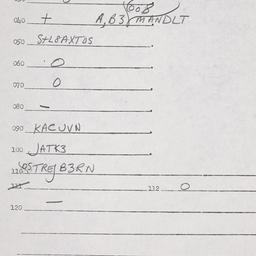 008
040 + A, B3 MANDLT
050 S+L8AXTOS
060 O
070 O
080 –
090 KACUVN
100 JATK3
110 OSTREJB3RN
111 112 O
120 –